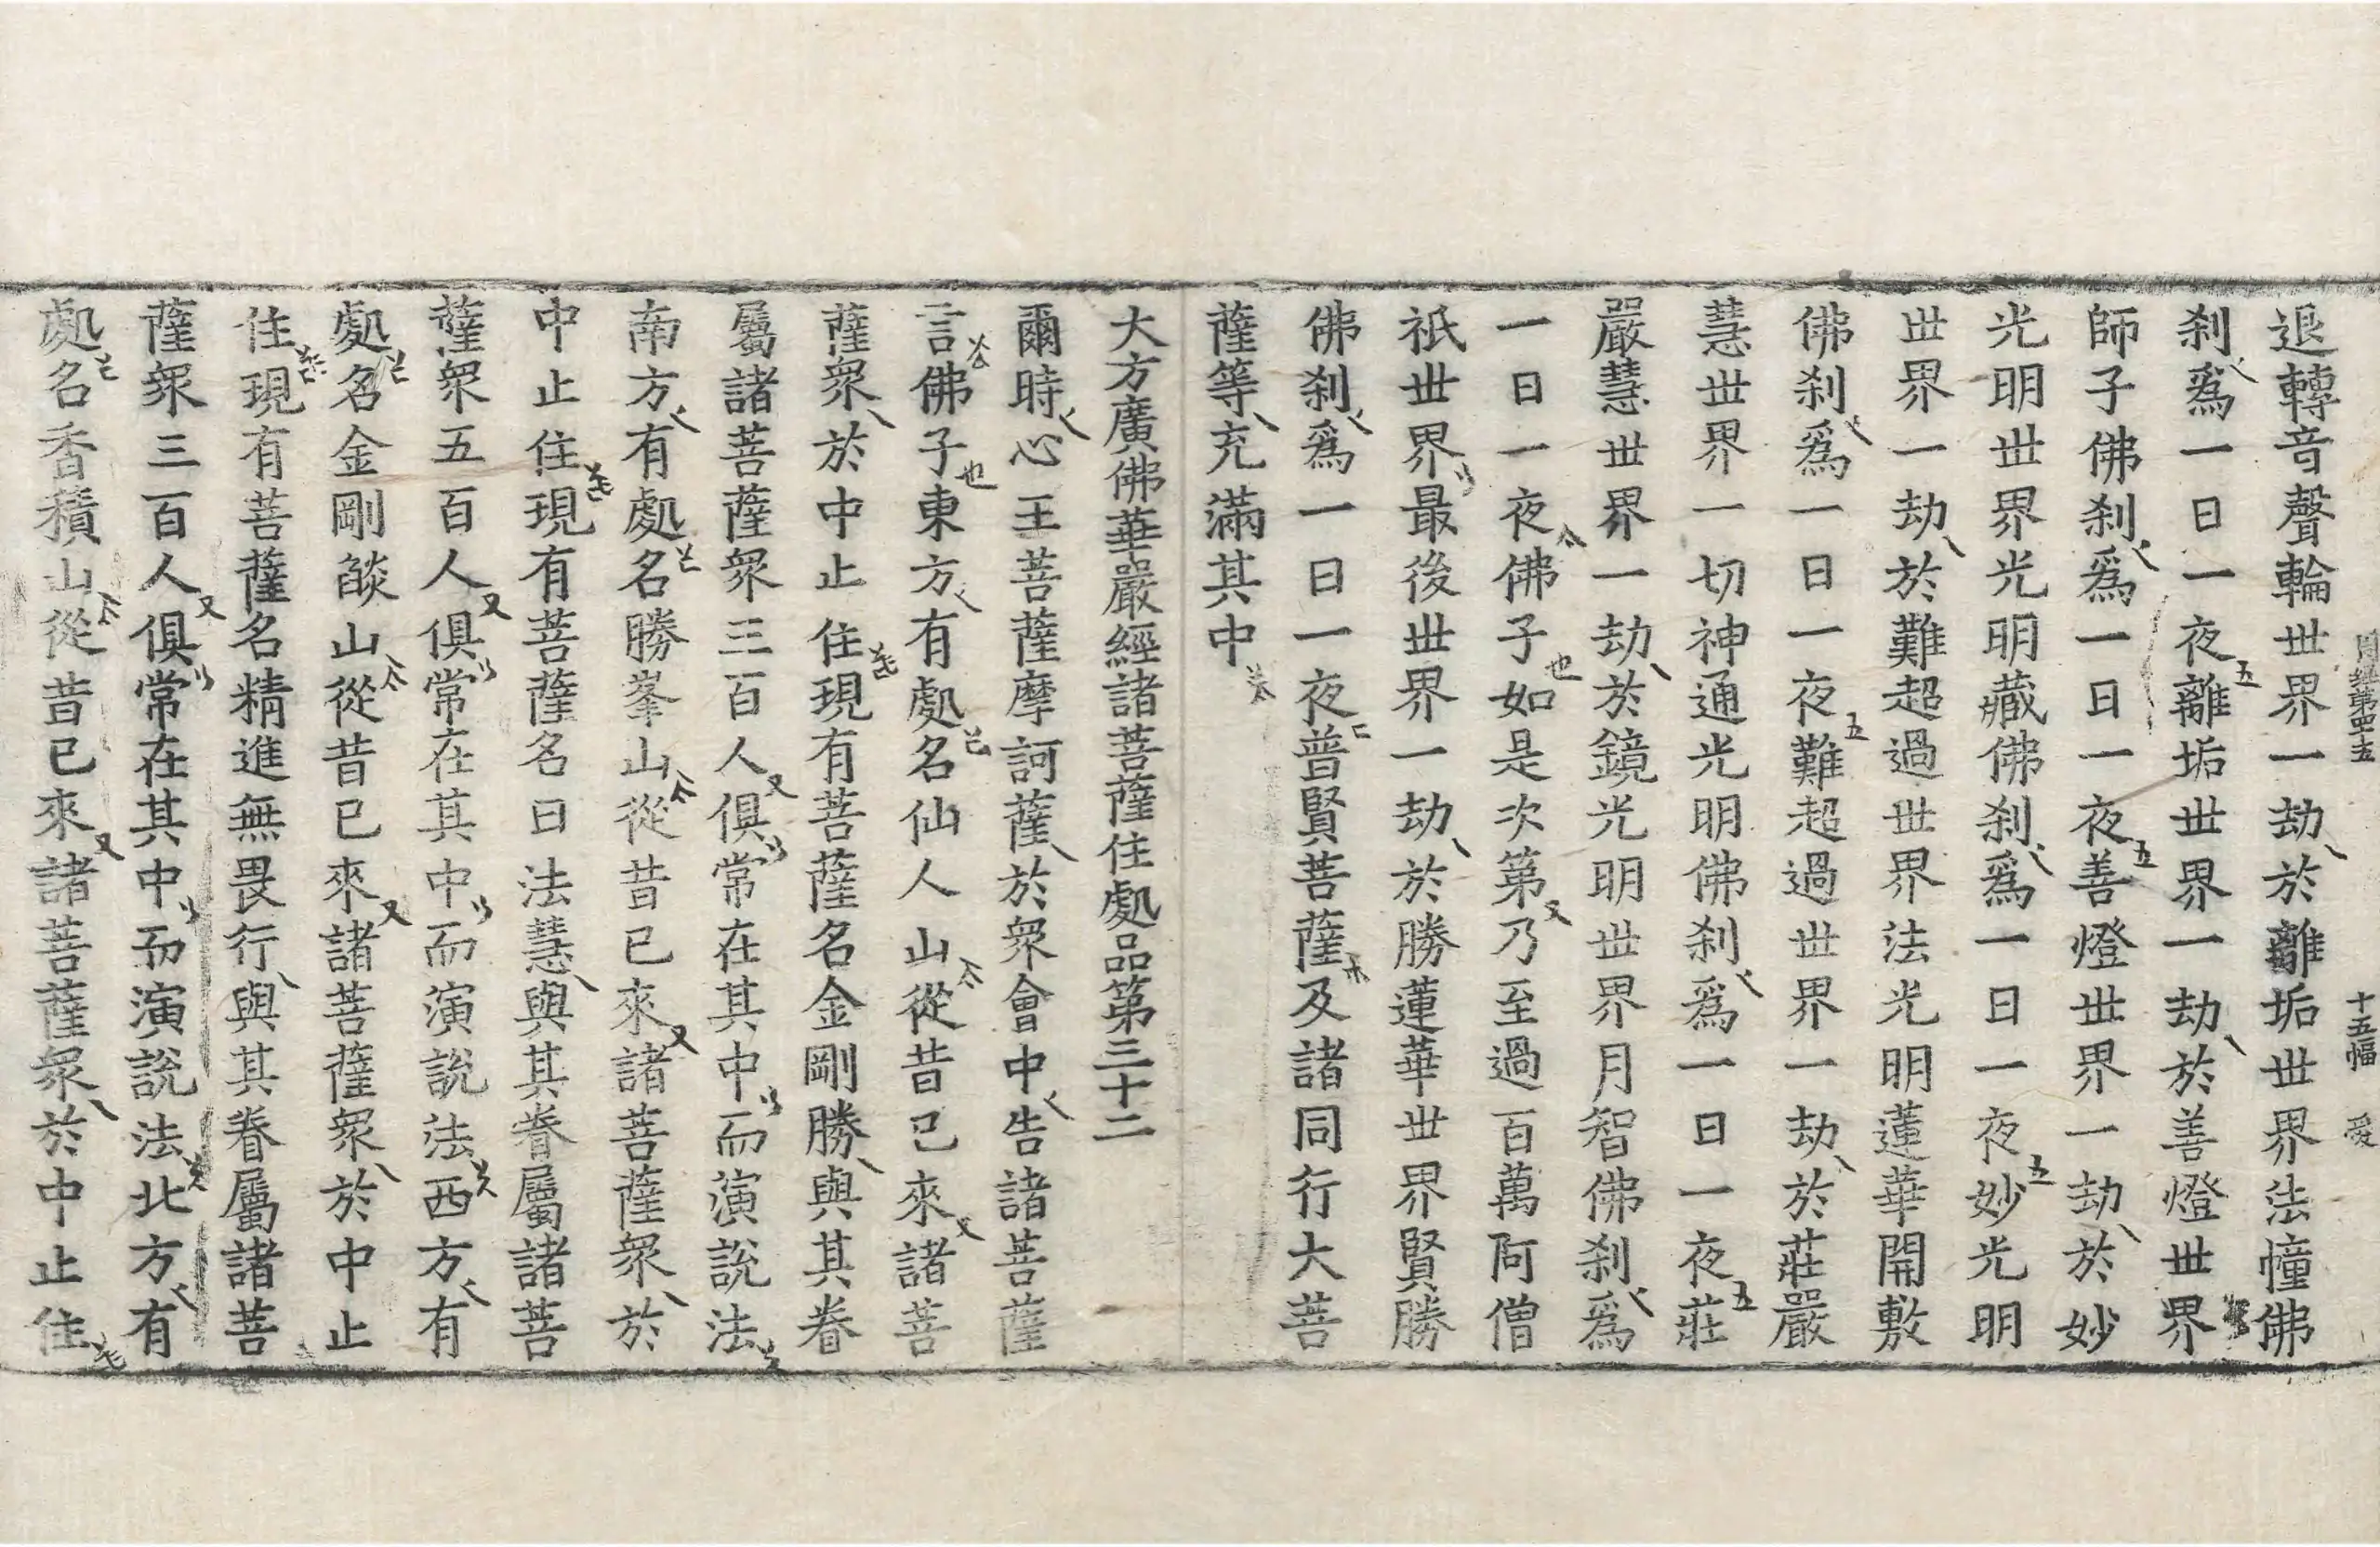 周經第四十五 十五幅 愛
退轉音聲輪世界一劫於離垢世界法幢佛
刹爲一日一夜離垢世界一劫於善燈世界
師子佛刹爲一日一夜善燈世界一劫於妙
光明世界光明藏佛刹爲一日一夜妙光明
世界一劫於難超過世界法光明蓮華開敷
佛刹爲一日一夜難超過世界一劫於莊嚴
慧世界一切神通光明佛刹爲一日一夜莊
嚴慧世界一劫於鏡光明世界月智佛刹爲
一日一夜佛子如是次第乃至過百萬阿僧
祇世界最後世界一劫於勝蓮華世界賢勝
佛刹爲一日一夜普賢菩薩及諸同行大菩
薩等充滿其中
大方廣佛華嚴經諸菩薩住處品第三十二
爾時心王菩薩摩訶薩於衆會中告諸菩薩
言佛子東方有處名仙人山從昔已來諸菩
薩衆於中止住現有菩薩名金剛勝與其眷
屬諸菩薩衆三百人俱常在其中而演說法
南方有處名勝峯山從昔已來諸菩薩衆於
中止住現有菩薩名曰法慧與其眷屬諸菩
薩衆五百人俱常在其中而演說法西方有
處名金剛燄山從昔已來諸菩薩衆於中止
住現有菩薩名精進無畏行與其眷屬諸菩
薩衆三百人俱常在其中而演說法北方有
處名香積山從昔已來諸菩薩衆於中止住